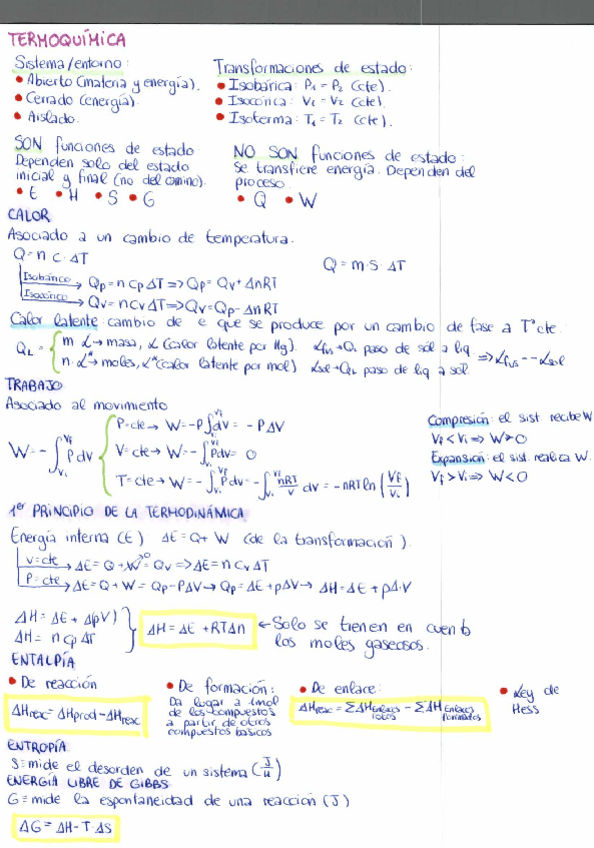 TERMOQUÍMICA
Sistema/entorno:
• Abierto (materia y energía).
• Cerrado (energía).
• Aislado.
Transformaciones de estado:
• Isobárica: P₁ = P₂ (cte).
• Isocórica: V₁ = V₂ (cte).
• Isoterma: T₁ = T₂ (cte).
SON funciones de estado
Dependen solo del estado
inicial y final (no del camino).
• E • H • S • G
NO SON funciones de estado:
Se transfiere energía. Dependen del
proceso.
• Q • W
CALOR
Asociado a un cambio de temperatura.
Q = n · c · ΔT
Q = m · S · ΔT
Isobárico → Qp = n Cp ΔT => Qp = Qv + ΔnRT
Isocórico → Qv = n Cv ΔT => Qv = Qp - ΔnRT
Calor latente: cambio de e que se produce por un cambio de fase a Tª cte.
QL = { m L → masa, L (calor latente por Kg). Lfus → QL paso de sól a líq => Lfus = - Lsol
n · L* → moles, L* (calor latente por mol) Lsol → QL paso de líq a sól.
TRABAJO
Asociado al movimiento
W = - ∫ P dV
P = cte → W = -P ∫ dV = - P ΔV
V = cte → W = - ∫ P dV = 0
T = cte → W = - ∫ P dV = - ∫ nRT/V dV = - nRT ln (Vf/Vi)
Compresión: el sist recibe W
Vf < Vi => W > 0
Expansión: el sist. realiza W.
Vf > Vi => W < 0
1er PRINCIPIO DE LA TERMODINÁMICA
Energía interna (E) ΔE = Q + W (de la transformación).
V = cte → ΔE = Q + W→0 = Qv => ΔE = n Cv ΔT
P = cte → ΔE = Q + W = Qp - PΔV → Qp = ΔE + pΔV → ΔH = ΔE + pΔV
ΔH = ΔE + Δ(pV)
ΔH = n Cp ΔT
ΔH = ΔE + RTΔn ← Solo se tienen en cuenta
los moles gaseosos.
ENTALPÍA
• De reacción
ΔHreac = ΔHprod - ΔHreac
• De formación:
Da lugar a 1mol
de los compuestos
a partir de otros
compuestos básicos
• De enlace:
ΔHreac = ΣΔH Enlaces rotos - ΣΔH Enlaces formados
• Ley de
Hess
ENTROPÍA
S ≡ mide el desorden de un sistema (J/K)
ENERGÍA LIBRE DE GIBBS
G ≡ mide la espontaneidad de una reacción (J)
ΔG = ΔH - T · ΔS